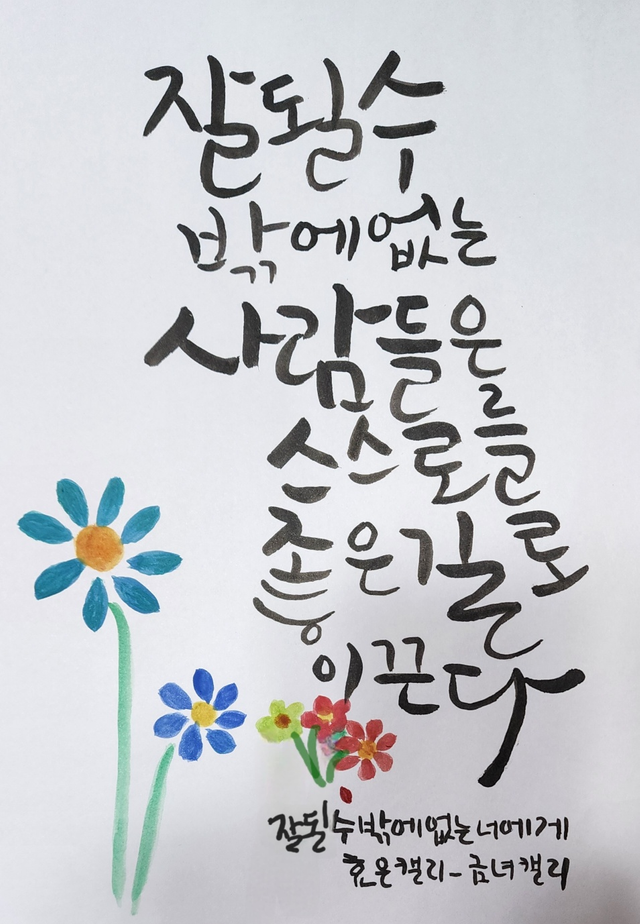 잘될수
밖에없는
사람들은
스스로를
좋은길로
이끈다
잘될수밖에없는너에게
효은캘리-금녀캘리